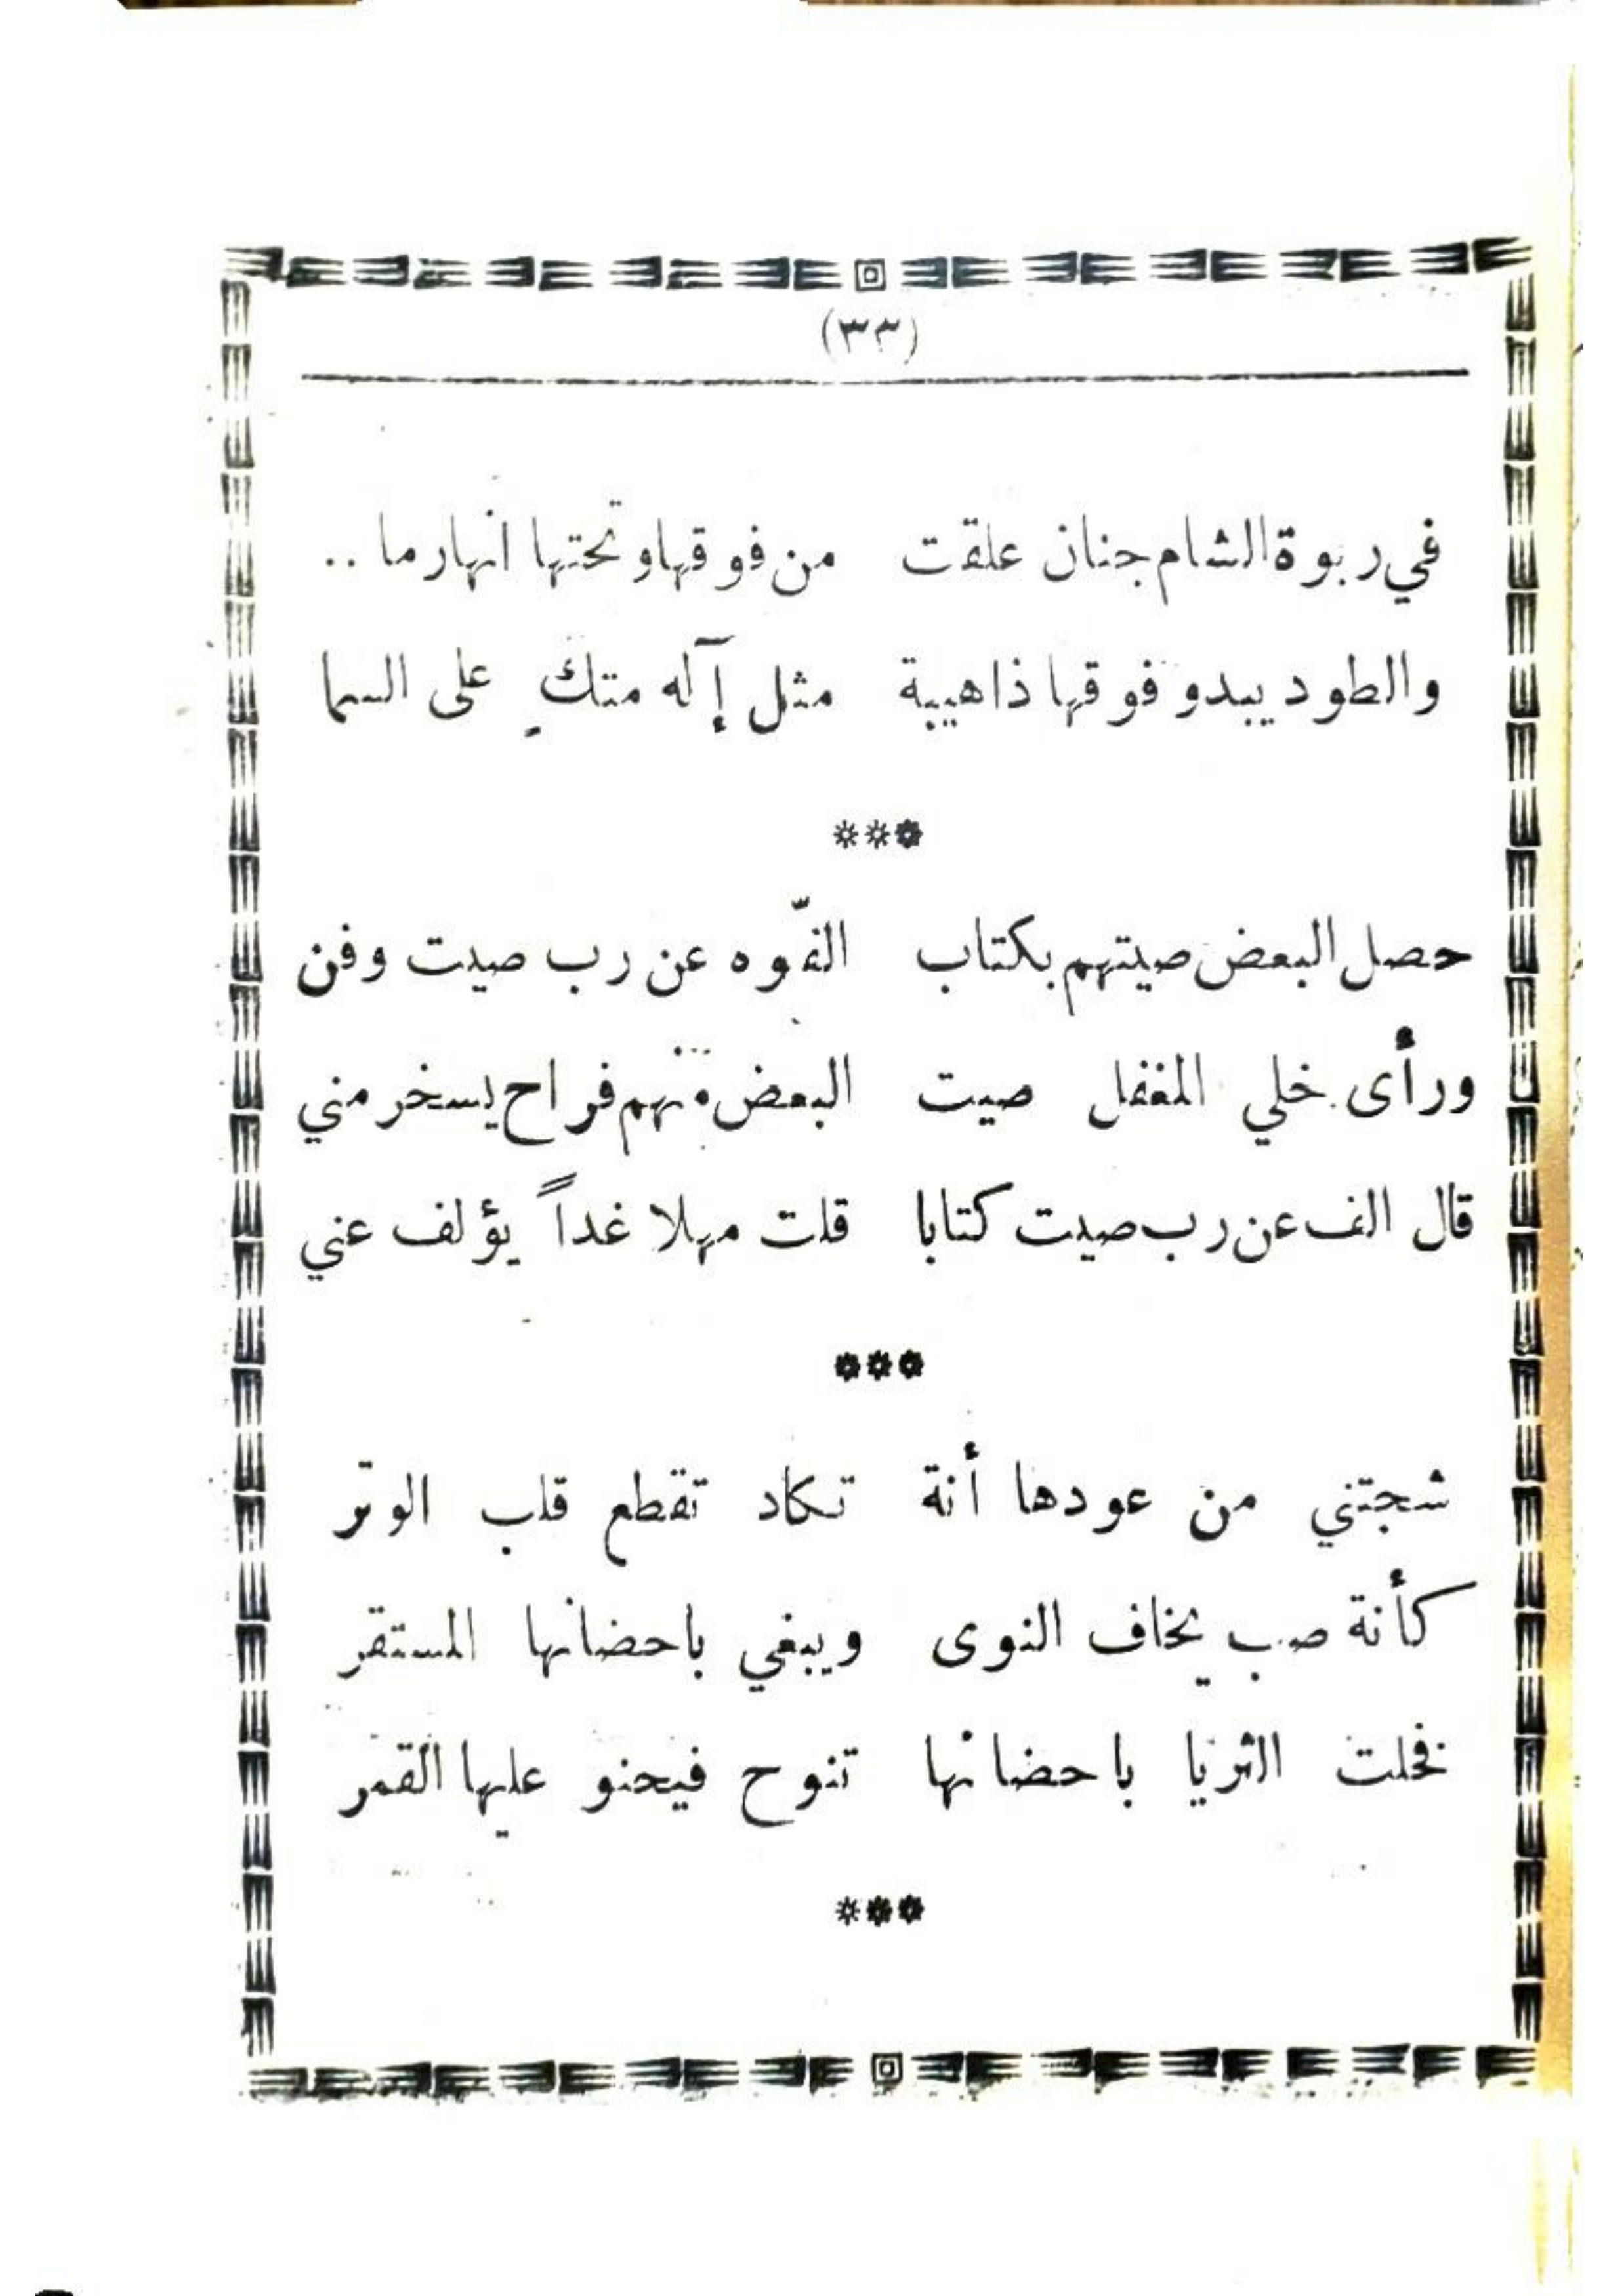 (٣٣)
في ربوة الشام جنان علقت من فوقها وتحتها انهار ما ..
والطود يبدو فوقها ذا هيبة مثل إآله متكٍ على السما
***
حصل البعض صيتهم بكتاب الفّوه عن رب صيت وفن
ورأى خلي المغفل صيت البعض منهم فراح يسخر مني
قال الف عن رب صيت كتابا قلت مهلا غداً يؤلف عني
***
شجتني من عودها أنة تكاد تقطع قلب الوتر
كأنة صب يخاف النوى ويبغي باحضانها المستقر
فخلت الثريا باحضانها تنوح فيحنو عليها القمر
***